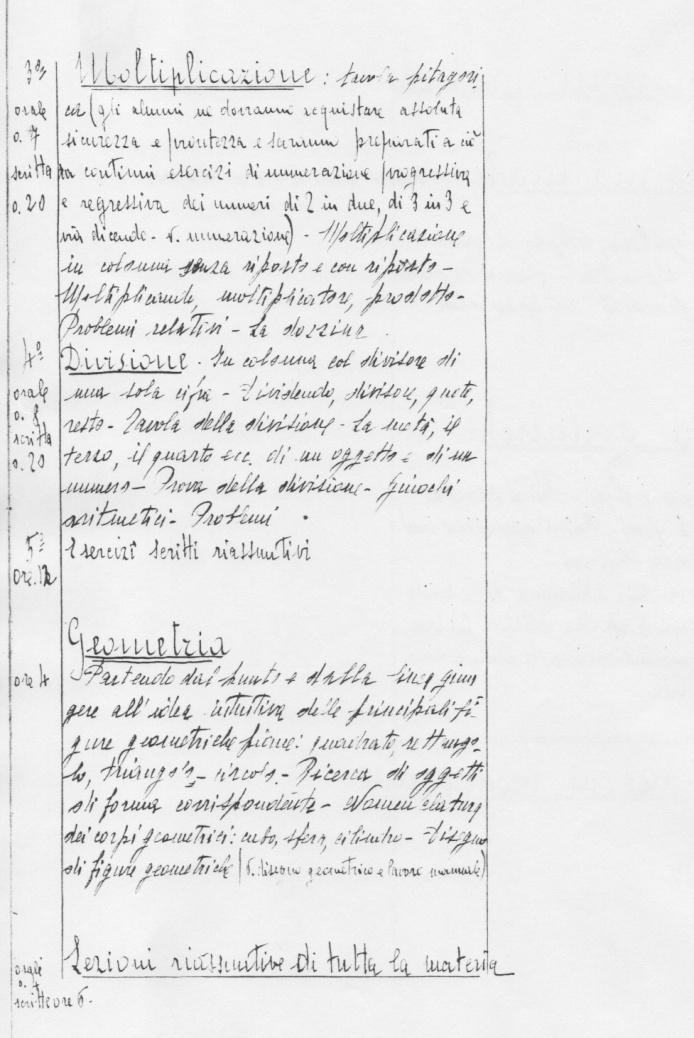 3° Moltiplicazione: tavola pitagori
orale ca (gli alunni ne dovranno acquistare assoluta
o. 7 sicurezza e prontezza e saranno preparati a ciò
scritta da continui esercizi di numerazione progressiva
o. 20 e regressiva dei numeri di 2 in due, di 3 in 3 e
via dicendo - v. numerazione) - Moltiplicazione
in colonna senza riporto e con riporto -
Moltiplicando, moltiplicatore, prodotto -
Problemi relativi - La dozzina.
4° Divisione. In colonna col divisore di
orale una sola cifra - Dividendo, divisore, quoto,
o. 8 resto - Tavola della divisione - La metà, il
scritta terzo, il quarto ecc. di un oggetto e di un
o. 20 numero - Prova della divisione - Giuochi
aritmetici - Problemi.
5° Esercizi scritti riassuntivi
ore. 12
Geometria
ore 4 Partendo dal punto e dalla linea giun
gere all'idea intuitiva delle principali fi-
gure geometriche piane: quadrato, rettango-
lo, triangolo - circolo. - Ricerca di oggetti
di forma corrispondente - Nomenclatura
dei corpi geometrici: cubo, sfera, cilindro - Disegno
di figure geometriche (v. disegno geometrico e lavoro manuale)
orali Lezioni riassuntive di tutta la materia
o. 4
scritte ore 6.